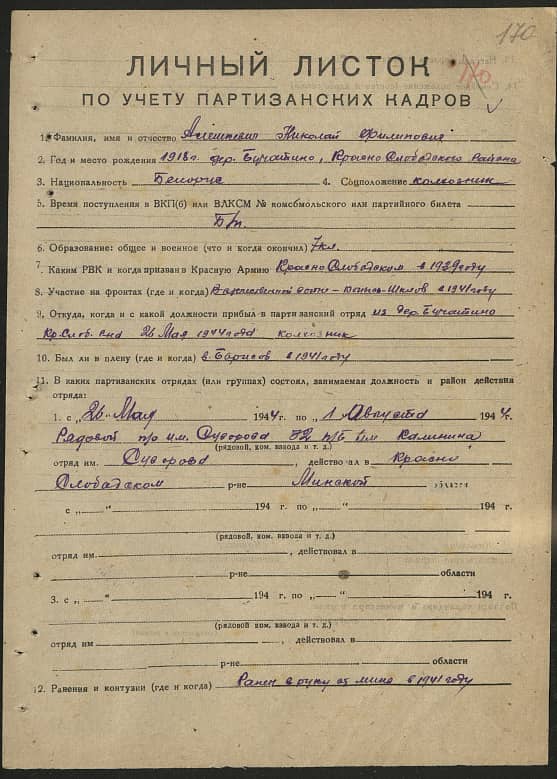 170
ЛИЧНЫЙ ЛИСТОК
ПО УЧЕТУ ПАРТИЗАНСКИХ КАДРОВ
1. Фамилия, имя и отчество Николай Филипович
2. Год и место рождения 1918 г. дер. Бучатино, Красно Слободского района
3. Национальность Белорус 4. Соцположение колхозник
5. Время поступления в ВКП(б) или ВЛКСМ № комсомольского или партийного билета
Б/п.
6. Образование: общее и военное (что и когда окончил) 7 кл.
7. Каким РВК и когда призван в Красную Армию Красно Слободском в 1939 году
8. Участие на фронтах (где и когда) в 1941 году
9. Откуда, когда и с какой должности прибыл в партизанский отряд из дер. Бучатино
Кр. Слоб. 26 Мая 1944 года колхозник
10. Был ли в плену (где и когда) в Борисов в 1941 году
11. В каких партизанских отрядах (или группах) состоял, занимаемая должность и район действия
отряда:
1. с „ 26 “ Мая 1944 г. по „ 1 “ Августа 1944 г.
Рядовой п/о им. Суворова п/б им Калинина
(рядовой, ком. взвода и т. д.)
отряд им. Суворова , действовал в Красно
Слободском р-не Минской области
с „ “ 194 г. по „ “ 194 г.
(рядовой, ком. взвода и т. д.)
отряд им. , действовал в
р-не области
3. с „ “ 194 г. по „ “ 194 г.
(рядовой, ком. взвода и т. д.)
отряд им , действовал в
р-не области
12. Ранения и контузии (где и когда) Ранен в руку от мины в 1941 году